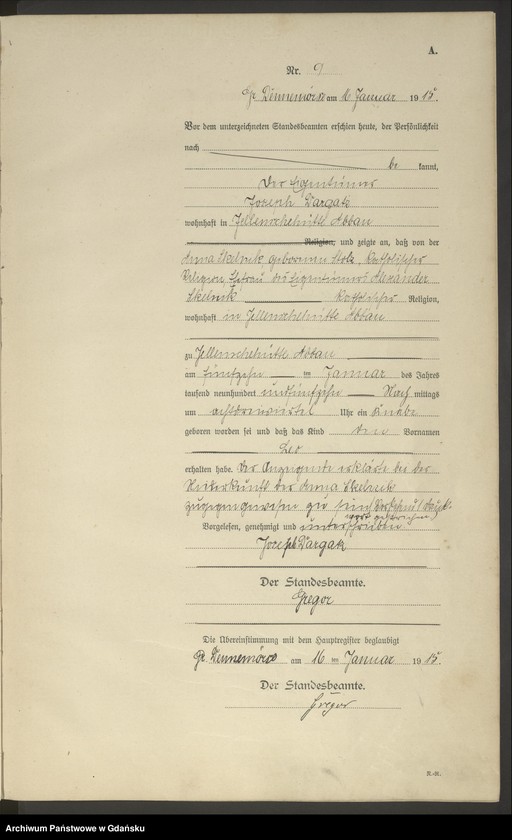 A.
Nr. 9
Gr. Dennemörse am 16 Januar 1915.
Vor dem unterzeichneten Standesbeamten erschien heute, der Persönlichkeit
nach
be kannt,
Der Eigentümer
Joseph Dargatz
wohnhaft in Jellenschehütte Abbau
Religion, und zeigte an, daß von der
Anna Skelnik geborenen Stolz, Katholischer
Religion, Ehefrau des Eigentümers Alexander
Skelnik Katholischer Religion,
wohnhaft in Jellenschehütte Abbau
zu Jellenschehütte Abbau
am fünfzehn ten Januar des Jahres
tausend neunhundert undfünfzehn Nach mittags
um achtdreiviertel Uhr ein Knabe
geboren worden sei und daß das Kind den Vornamen
Leo
erhalten habe. Der Anzeigende erklärte bei der
Niederkunft der Anna Skelnik
zugegengewesen zu sein
Vorgelesen, genehmigt und unterschrieben
Joseph Dargatz
Der Standesbeamte.
Gregor
Die Übereinstimmung mit dem Hauptregister beglaubigt
Gr. Dennemörse am 16 ten Januar 1915.
Der Standesbeamte.
Gregor
B.-H.
Archiwum Państwowe w Gdańsku